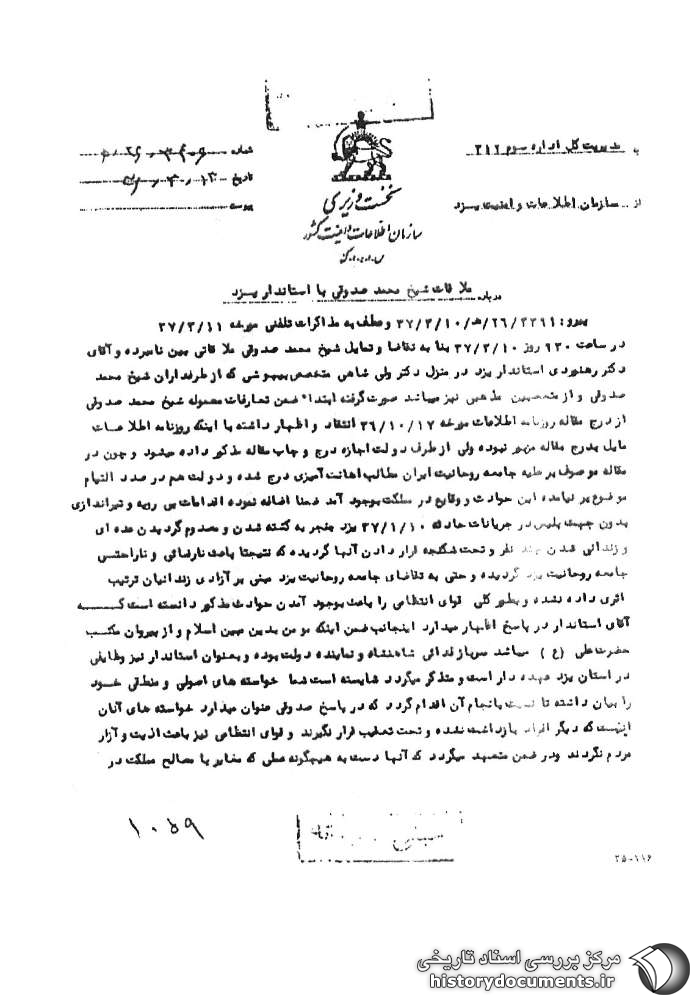 به مدیریت کل اداره سوم ۳۱۲
شماره
از سازمان اطلاعات و امنیت یزد
تاریخ
پیوست
نخست وزیری
سازمان اطلاعات و امنیت کشور
س.ا.و.ا.ک
درباره ملاقات شیخ محمد صدوقی با استاندار یزد
پیرو : ۲۶/۳۲۹۱/هـ/۳۷/۳/۱۰ و عطف به مذاکرات تلفنی مورخه ۳۷/۳/۱۱
در ساعت ۹۳۰ روز ۳۷/۳/۱۰ بنا به تقاضا و تمایل شیخ محمد صدوقی ملاقاتی بین نامبرده و آقای
دکتر رهنوردی استاندار یزد در منزل دکتر ولی شاهی متخصص بیهوشی که از طرفداران شیخ محمد
صدوقی و از متعصبین مذهبی نیز میباشد صورت گرفته ابتداء ضمن تعارفات معموله شیخ محمد صدوقی
از درج مقاله روزنامه اطلاعات مورخه ۳۶/۱۰/۱۷ انتقاد و اظهار داشته با اینکه روزنامه اطلاعات
مایل بدرج مقاله مزبور نبوده ولی از طرف دولت اجازه درج و چاپ مقاله مذکور داده میشود و چون در
مقاله موصوف بر علیه جامعه روحانیت ایران مطالب اهانت آمیزی درج شده و دولت هم در صدد التیام
موضوع بر نیامده این حوادث و وقایع در مملکت بوجود آمد ضمنا اضافه نموده اقدامات بی رویه و تیراندازی
بدون جهت پلیس در جریانات حادثه ۳۷/۱/۱۰ یزد منجر به کشته شدن و مصدوم گردیدن عده ای
و زندانی شدن چند نفر و تحت شکنجه قرار دادن آنها گردیده که نتیجتا باعث نارضائی و ناراحتی
جامعه روحانیت یزد گردیده و حتی به تقاضای جامعه روحانیت یزد مبنی بر آزادی زندانیان ترتیب
اثری داده نشده و بطور کلی قوای انتظامی را باعث بوجود آمدن حوادث مذکور دانسته است که
آقای استاندار در پاسخ اظهار میدارد اینجانب ضمن اینکه مومن بدین مبین اسلام و از پیروان مکتب
حضرت علی (ع) میباشد سرباز فدائی شاهنشاه و نماینده دولت بوده و بعنوان استاندار نیز وظایفی
در استان یزد عهده دار است و متذکر میگردد شایسته است شما خواسته های اصولی و منطقی خود
را بیان داشته تا نسبت بانجام آن اقدام گردد که در پاسخ صدوقی عنوان میدارد خواسته های آنان
اینست که دیگر افراد بازداشت نشده و تحت تعقیب قرار نگیرند و قوای انتظامی نیز باعث اذیت و آزار
مردم نگردند ودر ضمن متعهد میگردد که آنها دست به هیچگونه عملی که مغایر با مصالح مملکت در
۱۰۵۹
۳۵-۱۱۶
مرکز بررسی اسناد تاریخی
historydocuments.ir